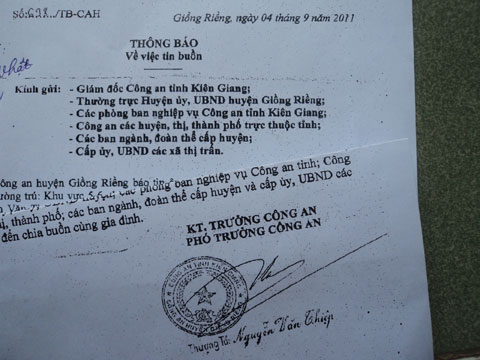 Số: 628./TB-CAH
Giồng Riềng, ngày 04 tháng 9 năm 2011
THÔNG BÁO
Về việc tin buồn
Kính gửi: - Giám đốc Công an tỉnh Kiên Giang;
- Thường trực Huyện ủy, UBND huyện Giồng Riềng;
- Các phòng ban nghiệp vụ Công an tỉnh Kiên Giang;
- Công an các huyện, thị, thành phố trực thuộc tỉnh;
- Các ban ngành, đoàn thể cấp huyện;
- Cấp ủy, UBND các xã thị trấn.
ông an huyện Giồng Riềng báo tin
các phòng ban nghiệp vụ Công an tỉnh; Công
ường trú: Khu vực
ị, thành phố; các ban ngành, đoàn thể cấp huyện và cấp ủy, UBND các
đến chia buồn cùng gia đình.
KT. TRƯỞNG CÔNG AN
PHÓ TRƯỞNG CÔNG AN
CÔNG AN TỈNH KIÊN GIANG
Thượng Tá: Nguyễn Văn Thiệp